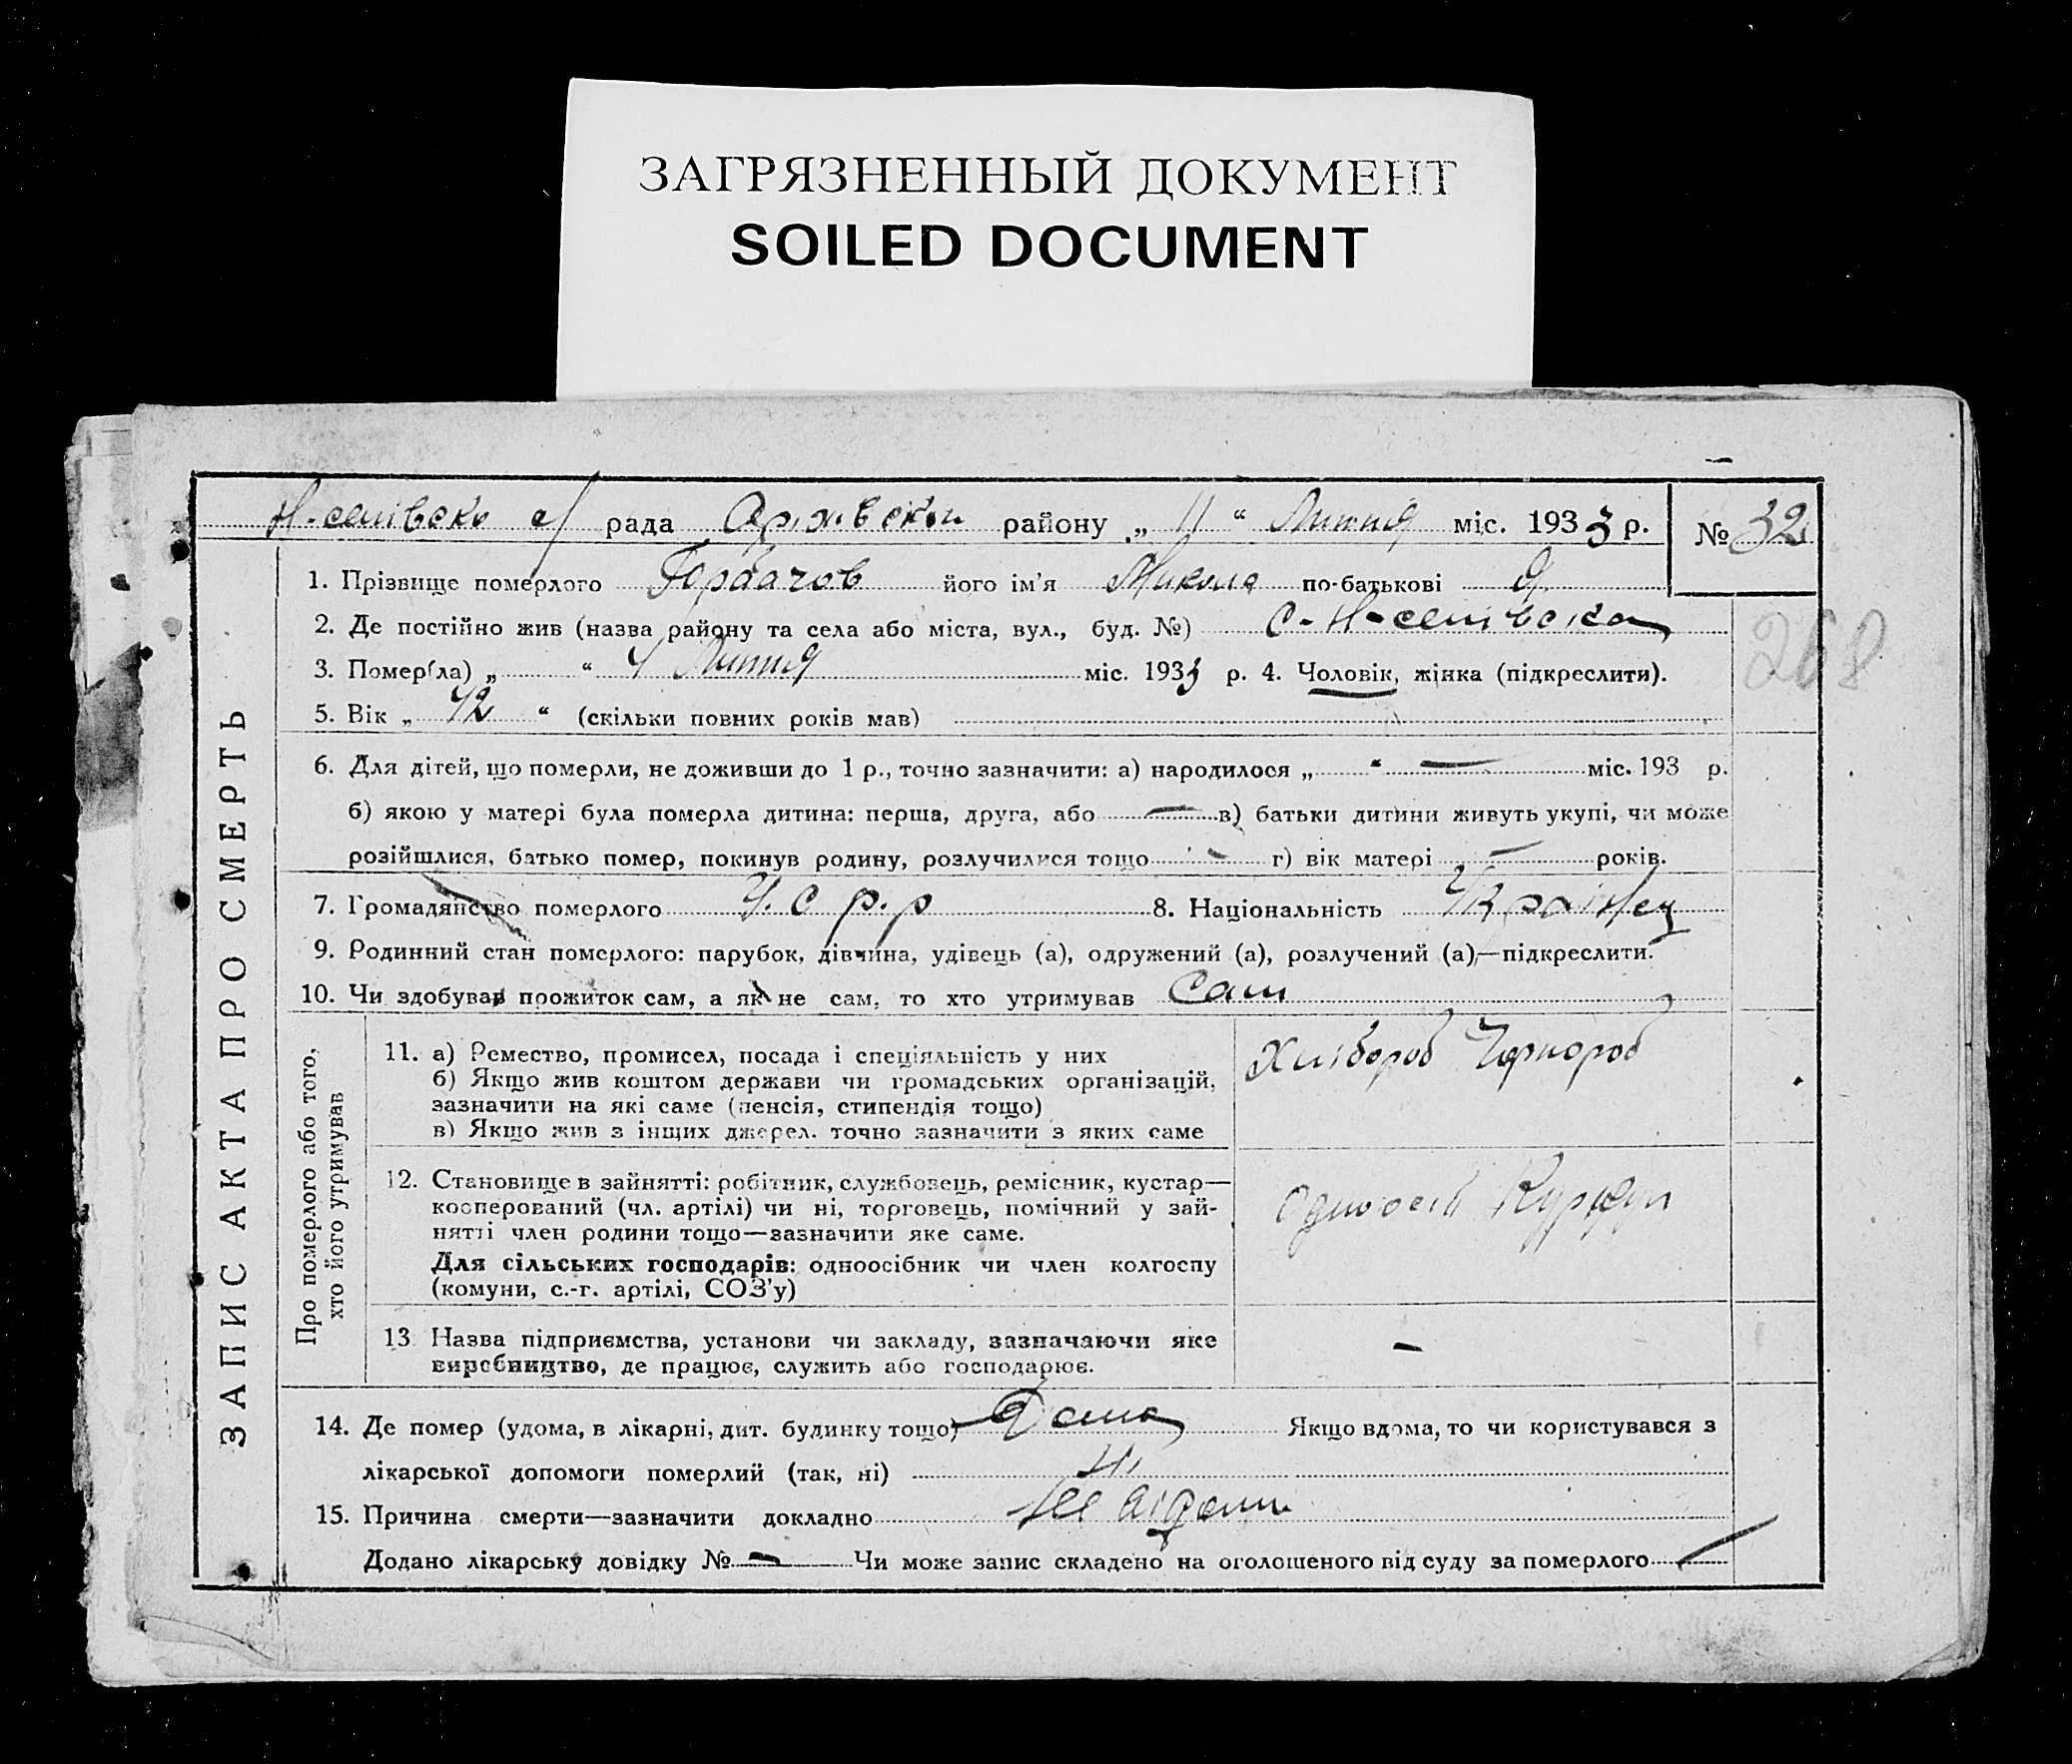 ЗАГРЯЗНЕННЫЙ ДОКУМЕНТ
SOILED DOCUMENT
Н-селівська с/ рада району „ 11 “ Липня міс. 1933 р. № 32
1. Прізвище померлого Горбачов його ім'я Микола по-батькові
268
2. Де постійно жив (назва району та села або міста, вул., буд. №) с-Н-селівска
3. Помер(ла) „ “ 4 Липня міс. 1933 р. 4. Чоловік, жінка (підкреслити).
5. Вік „ 42 “ (скільки повних років мав)
6. Для дітей, що померли, не доживши до 1 р., точно зазначити: а) народилося „ “ — міс. 193 р.
б) якою у матері була померла дитина: перша, друга, або — в) батьки дитини живуть укупі, чи може
розійшлися, батько помер, покинув родину, розлучилися тощо — г) вік матері — років.
7. Громадянство померлого У. С Р. Р 8. Національність Українец
9. Родинний стан померлого: парубок, дівчина, удівець (а), одружений (а), розлучений (а),—підкреслити.
10. Чи здобував прожиток сам, а як не сам, то хто утримував Сам
ЗАПИС АКТА ПРО СМЕРТЬ
Про померлого або того,
хто його утримував
11. а) Ремество, промисел, посада і спеціяльність у них
б) Якщо жив коштом держави чи громадських організацій,
зазначити на які саме (пенсія, стипендія тощо)
в) Якщо жив з інщих джерел. точно зазначити з яких саме
Хлібороб Чорнороб
12. Становище в зайнятті: робітник, службовець, ремісник, кустар—
кооперований (чл. артілі) чи ні, торговець, помічний у зай-
нятті член родини тощо—зазначити яке саме.
Для сільських господарів: одноосібник чи член колгоспу
(комуни, с.-г. артілі, СОЗ'у)
одноосіб Куркул
13 Назва підприємства, установи чи закладу, зазначаючи яке
виробництво, де працює, служить або господарює.
—
14. Де помер (удома, в лікарні, дит. будинку тощо) Дома Якщо вдома, то чи користувався з
лікарської допомоги померлий (так, ні) Ні
15. Причина смерти—зазначити докладно
Додано лікарську довідку № — Чи може запис складено на оголошеного від суду за померлого —